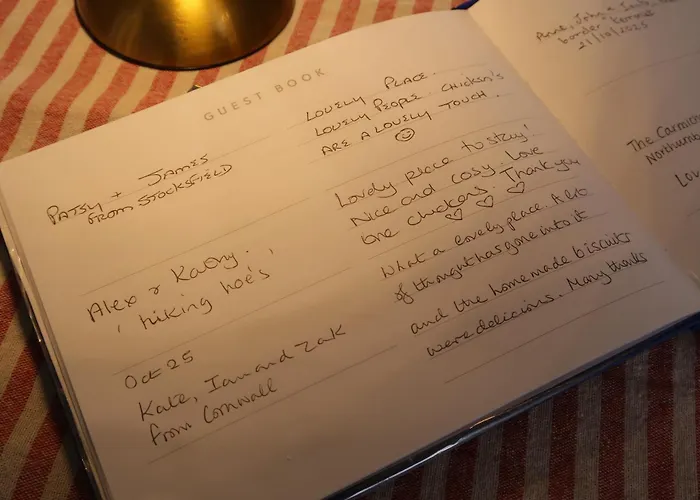 GUEST BOOK
PATSY + JAMES
FROM STOCKSFIELD
LOVELY PLACE.
LOVELY PEOPLE. CHICKEN'S
ARE A LOVELY TOUCH.
Alex & Kathy.
'hiking hoe's'
Lovely place to stay!
Nice and cosy. Love
the chickens. Thank you
Oct 25
Kate, Ian and Zak
from Cornwall
What a lovely place. A lot
of thought has gone into it
and the homemade biscuits
were delicious. Many thanks
Anne, John &
border terrier
21/10/2025
The Carmich
Northumb
Lov